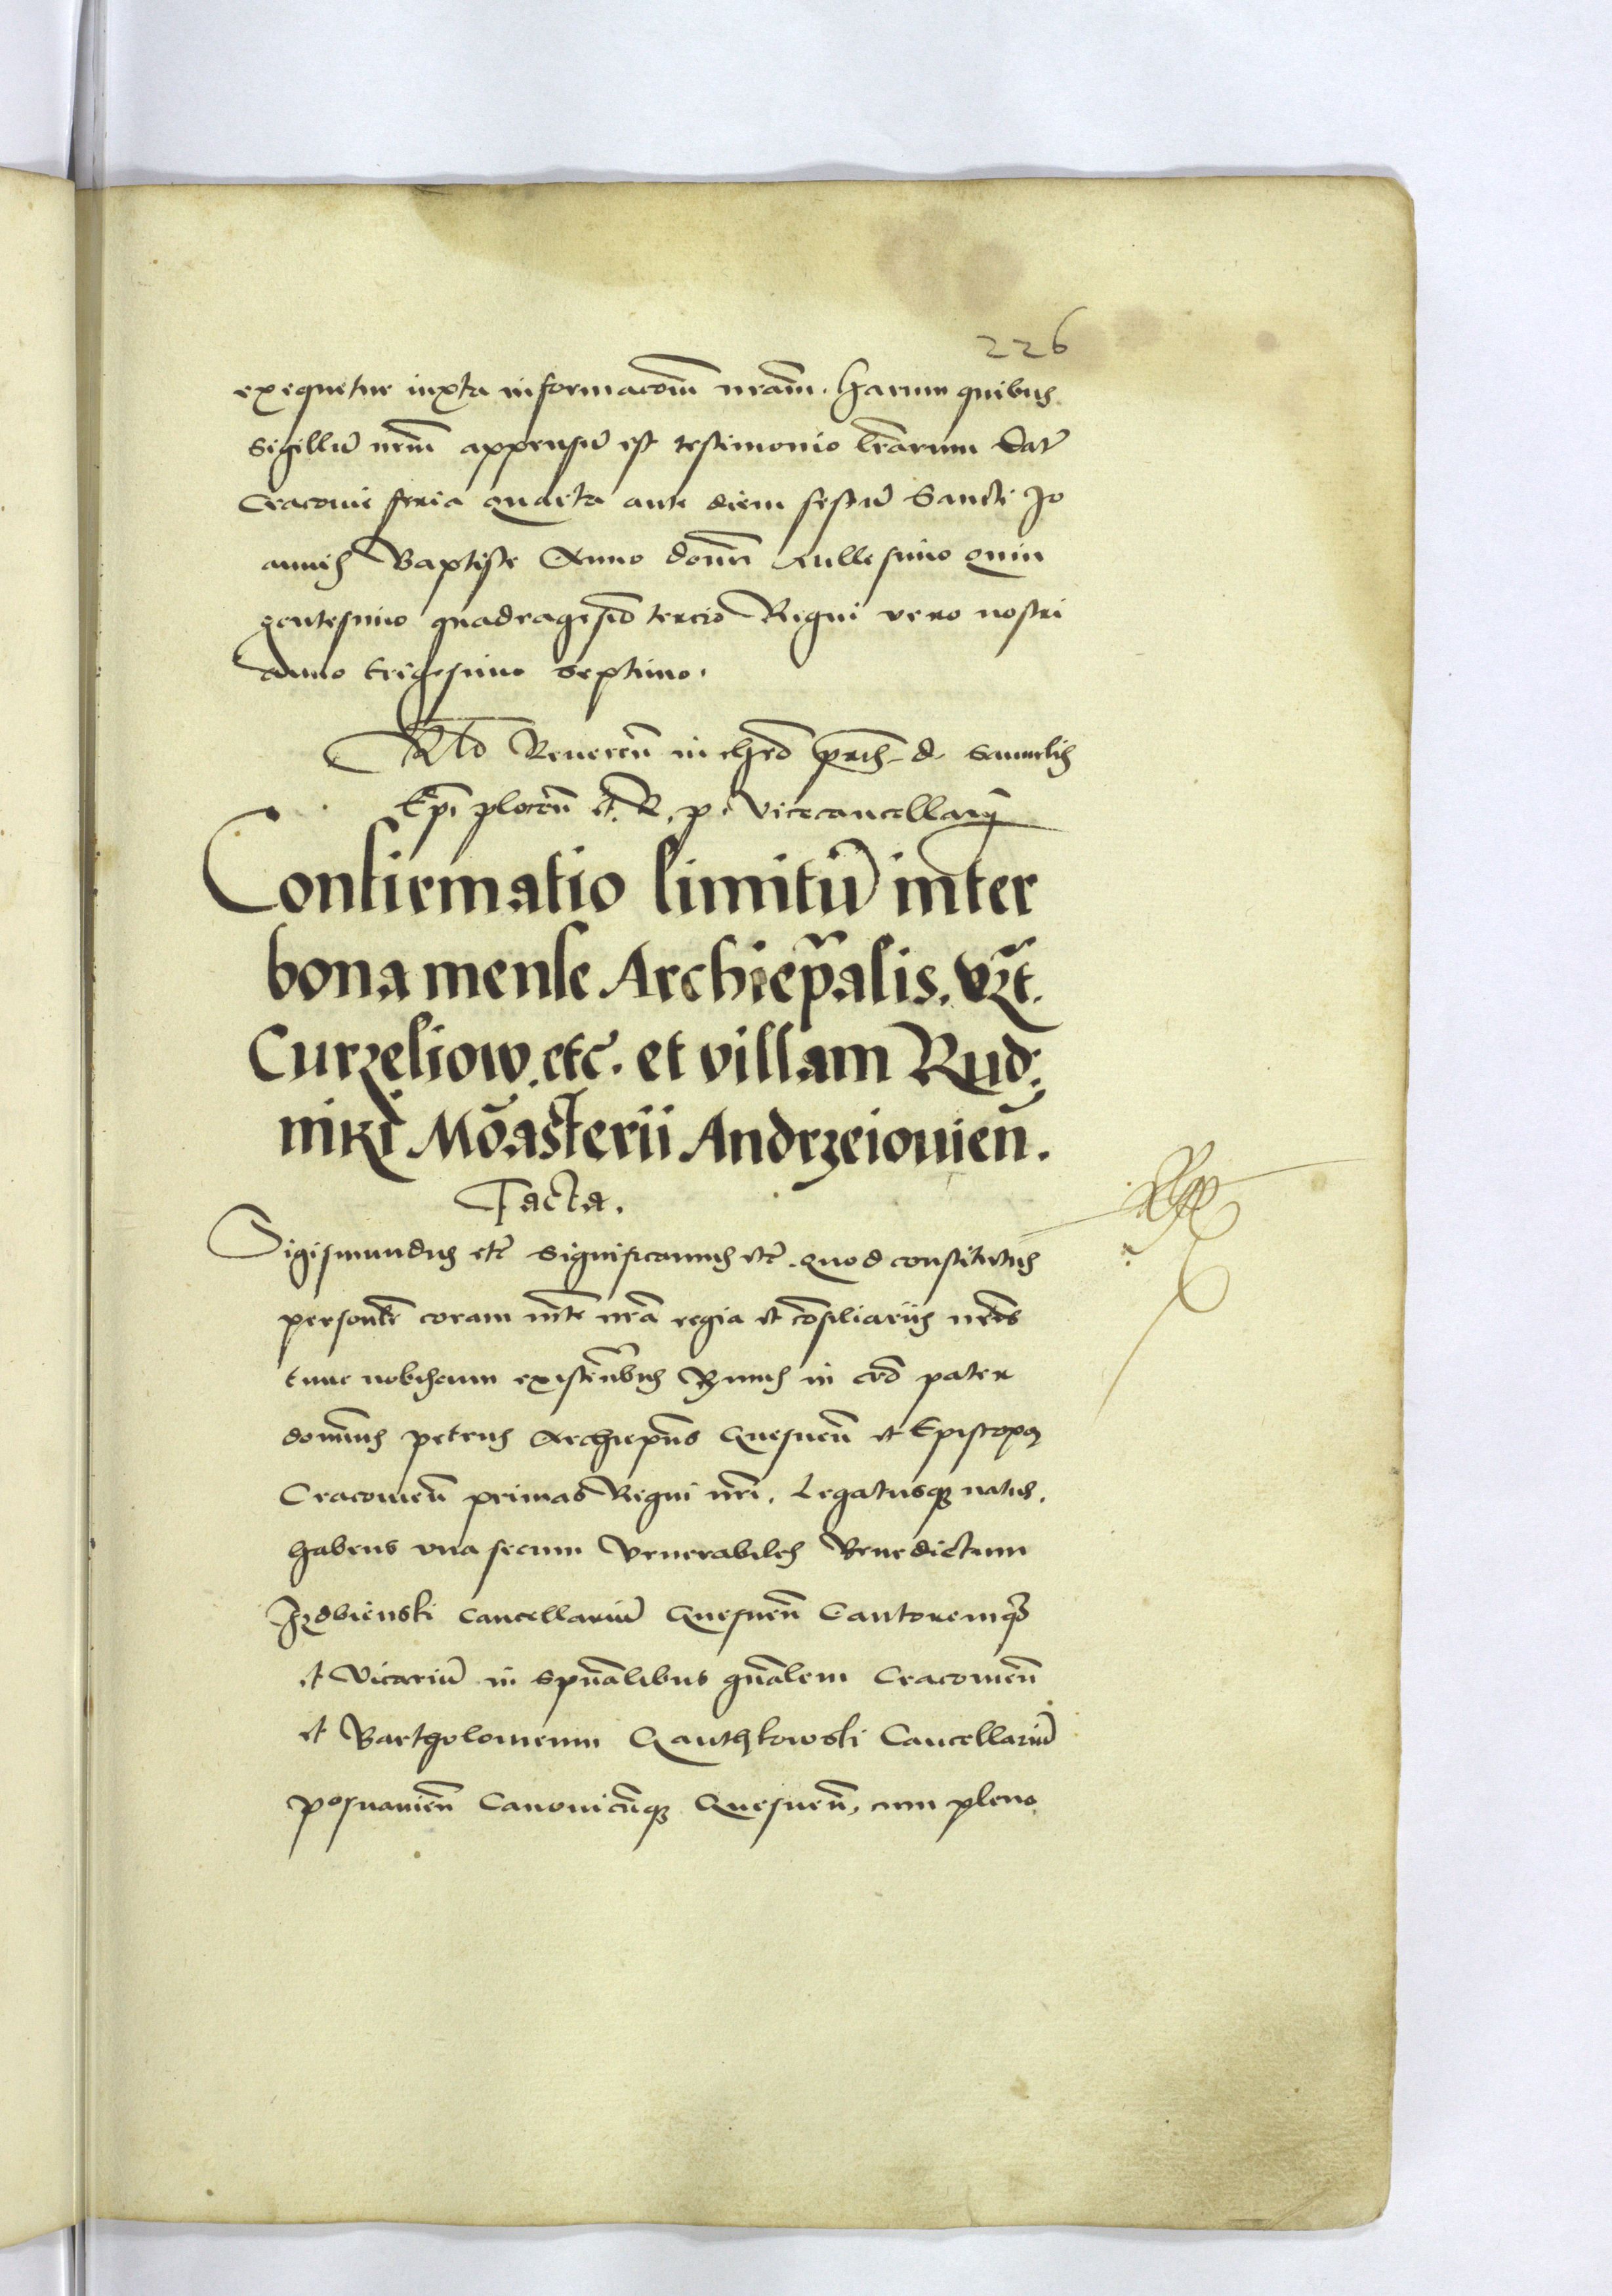 226
exequetur iuxta informacōm̄ nrām. Harum quibus
sigillū nrm̄ appensū est testimonio lrārum Dat̄
Cracovie feria quarta ante diem festū Sancti Jo
annis Baptiste Anno domi Millesimo quin
gentesimo quadragesīo tercio Regni vero nostri
Anno trigesimo septimo.
Rlō Reveren̄ in chrō prīs d. Samuelis
Epī plocen̄ et R. p. vicecancellarij
Confirmatio limitū inter
bona mense Archiep̄alis. vz̄t.
Curzeliow. etc̄. et villam Rud:
niki Mōasterii Andrzeiouien̄.
Facta.
Sigismundus etc̄ Significamus etc̄. Quod constitutus
personalr̄ coram mte nrā regia et cōsiliariis nrīs
tunc nobiscum existen̄bus Rmus in crō pater
domīnus petrus Archiepūs Gnesnen̄ et Episcopus
Cracovien̄ primas Regni nrī. Legatusq̄ natus.
habens una secum venerabiles Benedictum
Izdbienski Cancellariū Gnesnen̄ Cantoremq̄
et vicariū in spūalibus gn̄alem Cracovien̄
et Bartholomeum Ganthkowski Cancellariū
posnanien̄ Canonicūq̄ Gnesnen̄, cum pleno